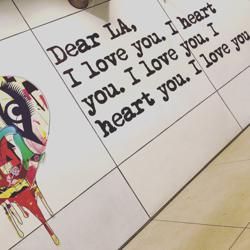 Dear LA,
I love you. I heart
you. I love you. I
heart you. I love you